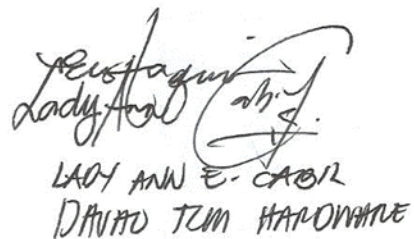 Lady Ann
LADY ANN E. CABIL
DAVAO TCM HARDWARE